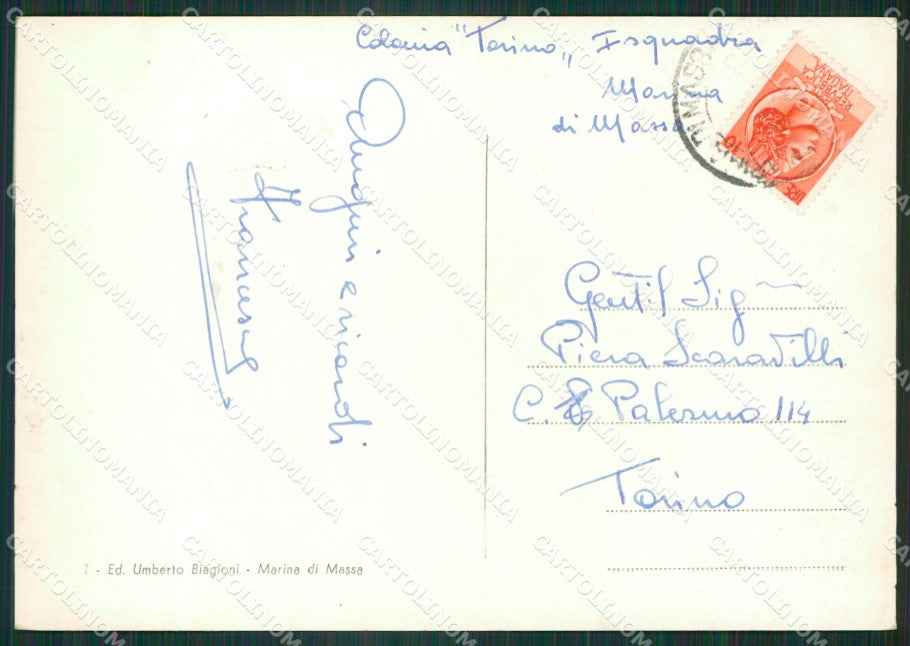 Colonia "Torino" I squadra
Marina
di Massa
Auguri e ricordi
Francesco
Gentil Sig
Piera Scaravilli
C. Palermo 114
Torino
1 - Ed. Umberto Biagioni - Marina di Massa
REPUBBLICA
ITALIANA
LIRE
DI MASSA
CARTOLINOMANIA